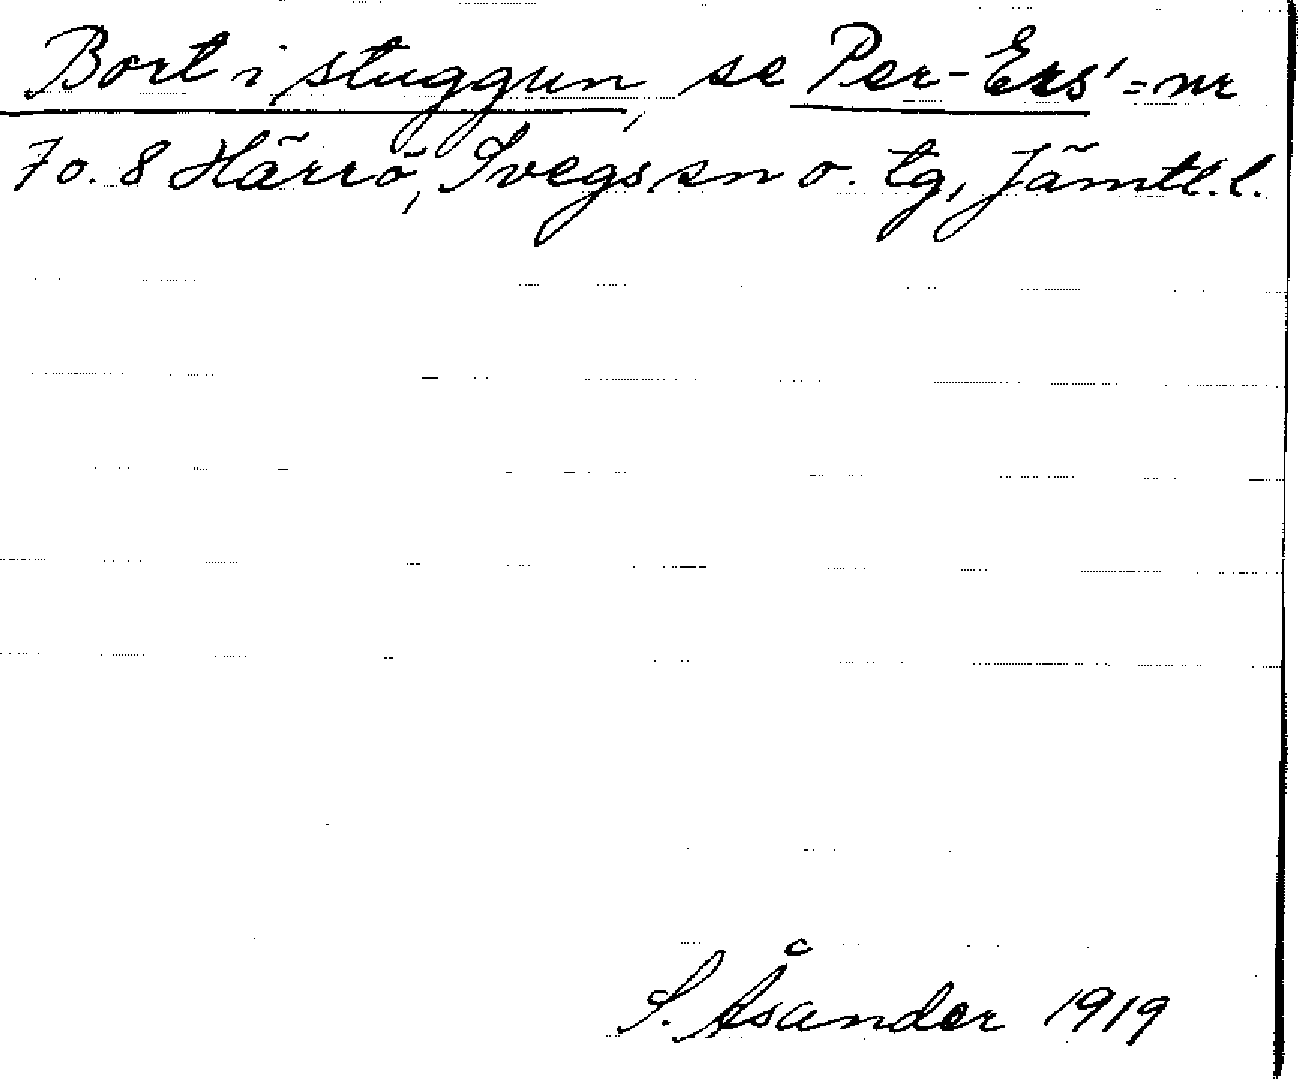 Bort i stuggun, se Per-Ers' = nr
7 o. 8 Härrö, Svegs sn o. tg, Jämtl. l.
S. Åsander 1919